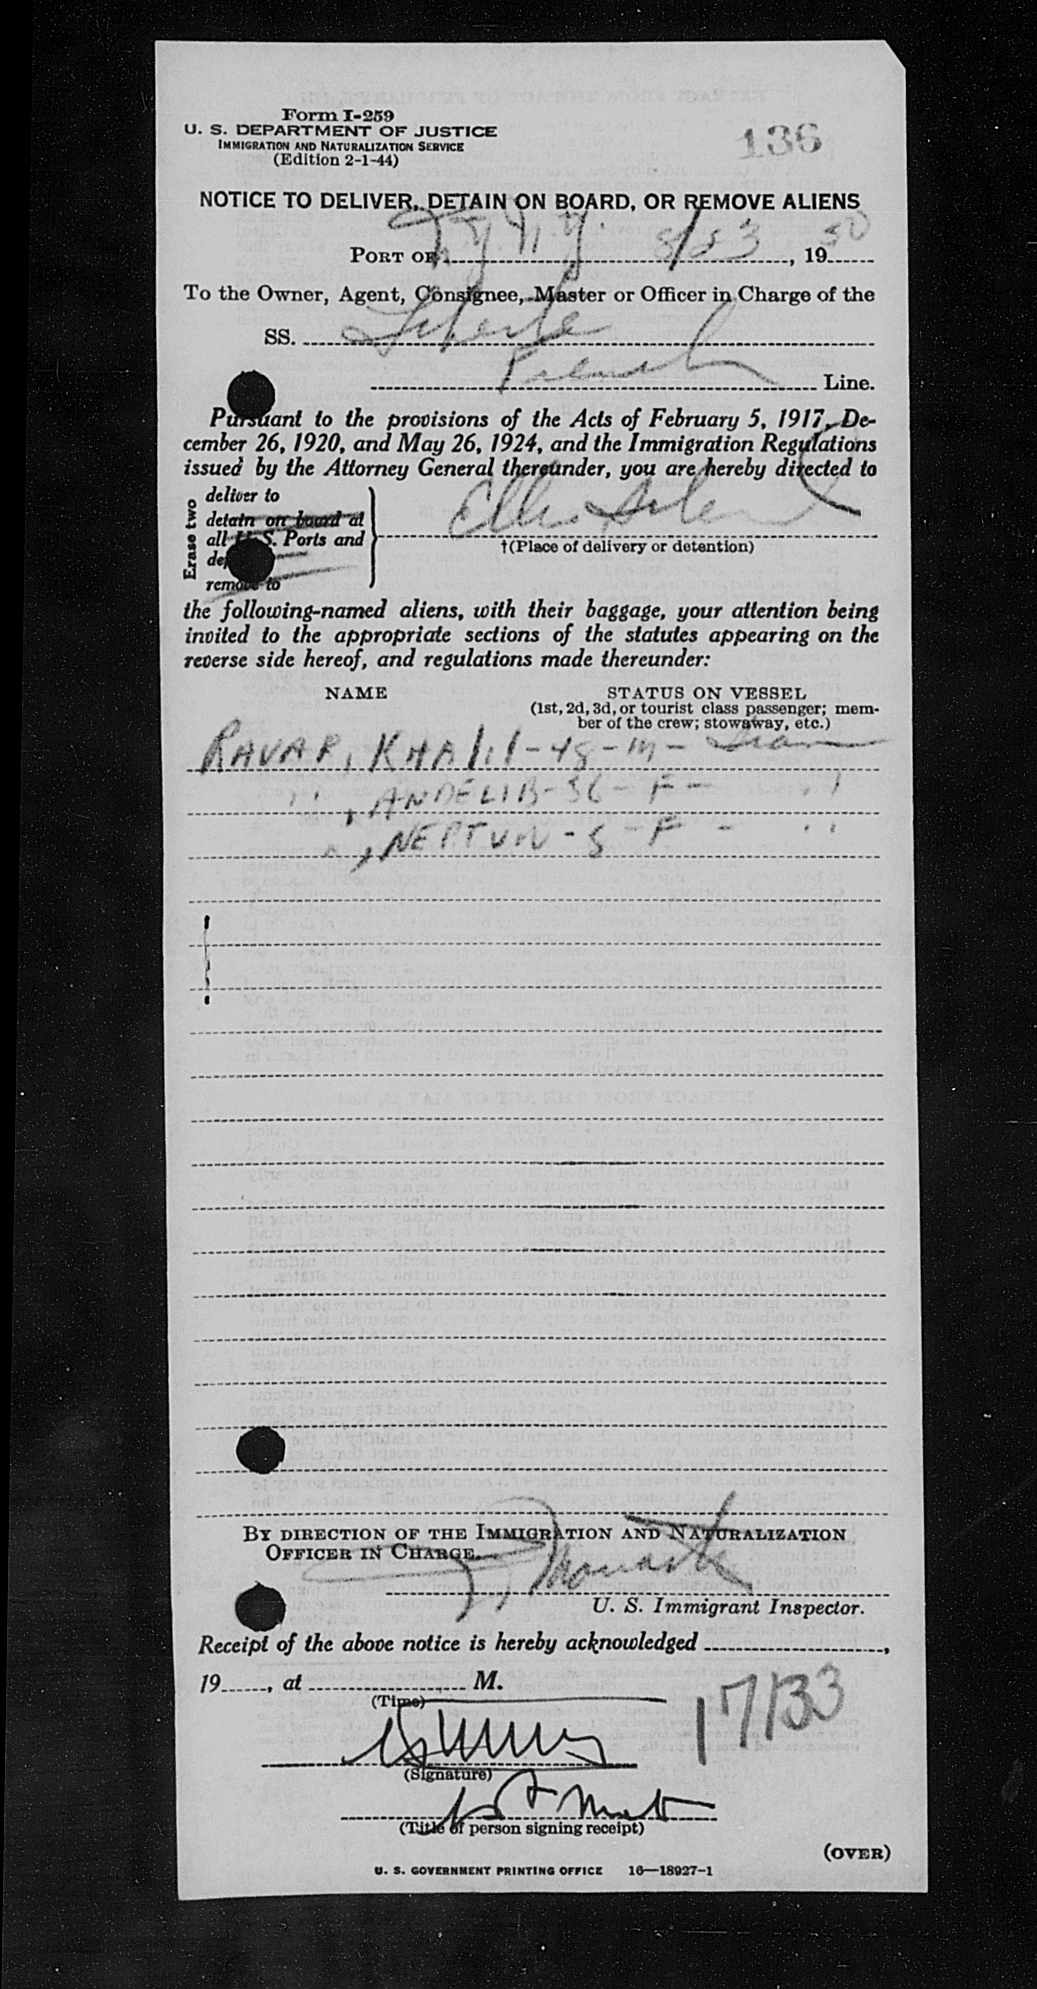 Form I-259
U. S. DEPARTMENT OF JUSTICE
IMMIGRATION AND NATURALIZATION SERVICE
(Edition 2-1-44)
136
NOTICE TO DELIVER, DETAIN ON BOARD, OR REMOVE ALIENS
PORT OF N.Y. 8/23, 1950
To the Owner, Agent, Consignee, Master or Officer in Charge of the
SS. Liberte
French Line.
Pursuant to the provisions of the Acts of February 5, 1917, De-
cember 26, 1920, and May 26, 1924, and the Immigration Regulations
issued by the Attorney General thereunder, you are hereby directed to
Erase two
deliver to
detain on board at
all U. S. Ports and
remove to
Ellis Island
†(Place of delivery or detention)
the following-named aliens, with their baggage, your attention being
invited to the appropriate sections of the statutes appearing on the
reverse side hereof, and regulations made thereunder:
NAME STATUS ON VESSEL
(1st, 2d, 3d, or tourist class passenger; mem-
ber of the crew; stowaway, etc.)
RAVAR, KHAlil - 48 - m - Iran
" , ANDELIB - 36 - F - "
" , NEPTUN - 5 - F - "
BY DIRECTION OF THE IMMIGRATION AND NATURALIZATION
OFFICER IN CHARGE.
U. S. Immigrant Inspector.
Receipt of the above notice is hereby acknowledged ,
19 , at M.
(Time)
17133
(Signature)
(Title of person signing receipt)
(OVER)
U. S. GOVERNMENT PRINTING OFFICE 16—18927-1